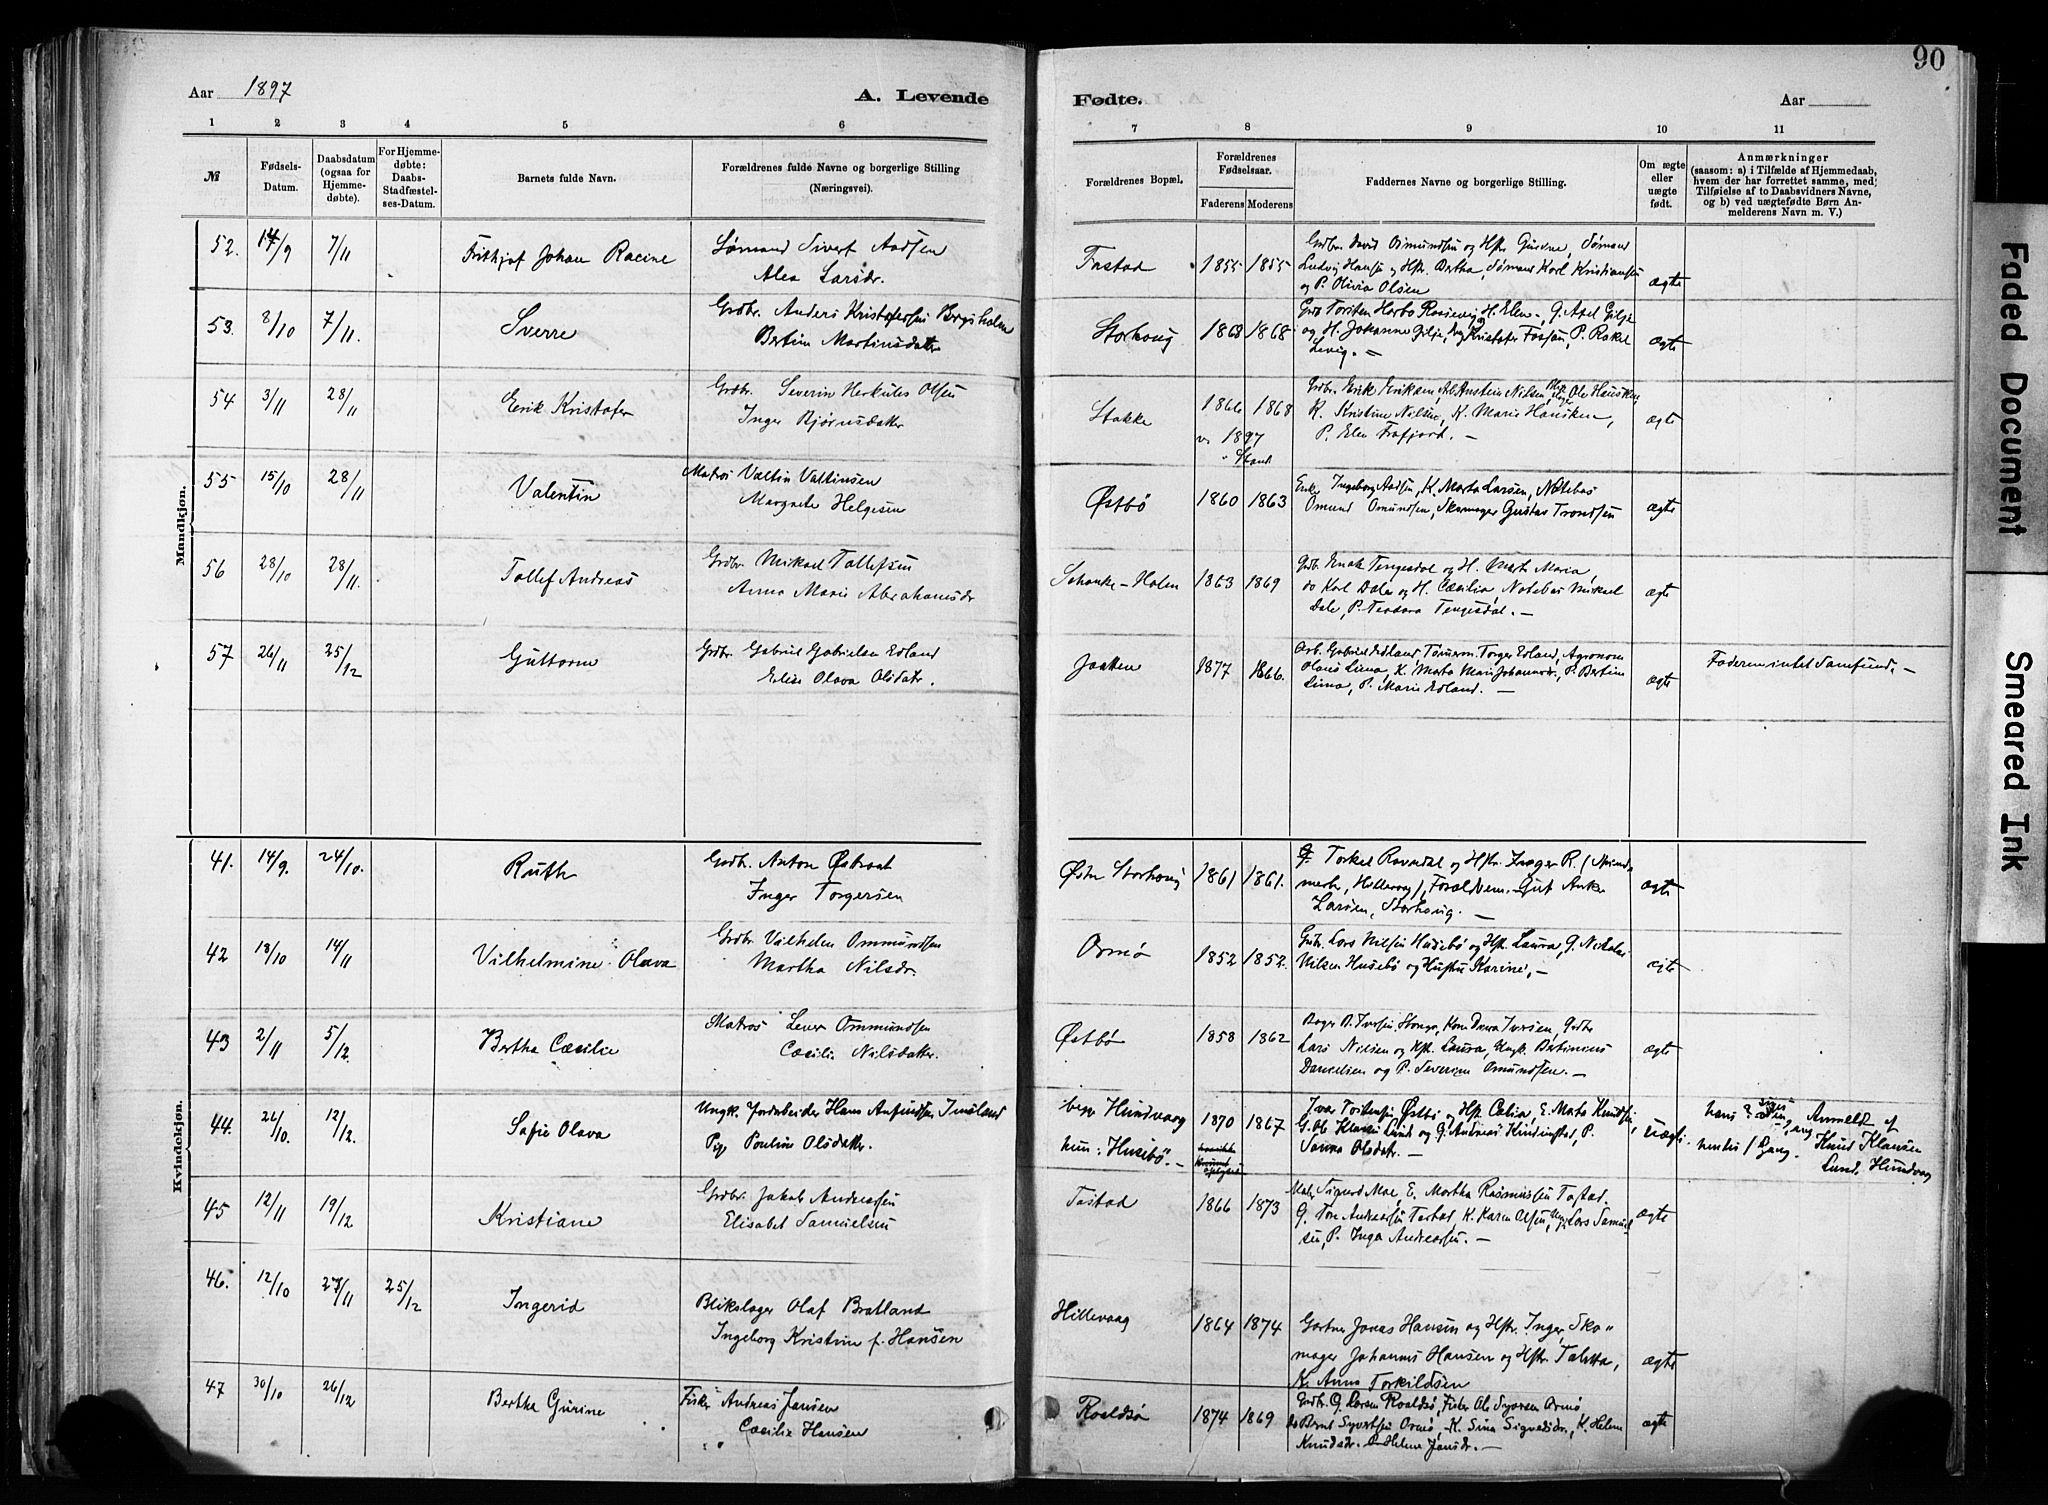 90
Aar 1897
A. Levende
Fødte.
Aar
1 2 3 4 5 6 7 8 9 10 11
№
Fødsels-
Datum.
Daabsdatum
(ogsaa for
Hjemme-
døbte).
For Hjemme-
døbte:
Daabs-
Stadfæstel-
ses-Datum.
Barnets fulde Navn.
Forældrenes fulde Navne og borgerlige Stilling
(Næringsvei).
Forældrenes Bopæl.
Forældrenes
Fødselsaar.
Faderens Moderens
Faddernes Navne og borgerlige Stilling.
Om ægte
eller
uægte
født.
Anmærkninger
(saasom: a) i Tilfælde af Hjemmedaab,
hvem der har forrettet samme, med
Tilføielse af to Daabsvidners Navne,
og b) ved uægtefødte Børn An-
melderens Navn m. V.)
Mandkjøn.
52. 14/9 7/11 Frithjof Johan Racine
Sømand Sivert Aadsen
Alea Larsdr.
Tastad 1855 1855
Grdbr. David Osmundsen og Hstr. Gurine, Sømand
Ludvig Hansen og Hstr. Bertha, Sømand Karl Kristiansen
og P. Olivia Olsen
ægte
53. 8/10 7/11. Sverre
Grdbr. Anders Kristofersen
Bertine Martinsdatter
Storhoug 1868 1868
ægte
54 3/11 28/11 Erik Kristofer
Grdbr. Severin Herkules Olsen
Inger Bjørnsdatter
Stokke 1866 1868
v. 1897
Grdbr. Erik Eriksen,
K. Kristine Nilsen, K. Marie Hausken,
P. Elen Frafjord. —
ægte
55 15/10 28/11 Valentin
Matros Valtin Valtinsen
Margrete Helgesen
Østbø 1860 1863
Enke Ingeborg Aadsen, K. Marta Larsen, Notebas
Omund Omundsen, Skomager Gustav Trondsen
ægte
56 28/10 28/11. Tollef Andreas
Grdbr. Mikael Tollefsen
Anna Marie Abrahamsdr
1863 1869
Tengesdal og H. Marta Maria
do Karl Dale og H. Cæcilia, Notebas Mikael
Dale, P. Teodora Tengesdal. —
ægte
57 26/11 25/12 Guttorm
Grdbr. Gabriel Gabrielsen Edland
Elise Olava Olsdatr.
Jaatten 1877 1866.
Arb. Gabriel Edland Tømerm. Torger Edland, Agronom
Olaus Lima, K. Marta Mari Johannesdr., P. Bertine
Lima, P. Marie Edland. —
ægte
Faderen intet Samfund. —
Kvindekjøn.
41. 14/9. 24/10. Ruth
Grdb. Anton Østraat
Inger Torgersen
Østre Storhoug 1861 1861.
G. Torkel Ravndal og Hstr. Inger R.
Larsen, Storhoug. —
ægte
42 18/10 14/11 Vilhelmine Olava
Grdbr. Vilhelm Ommundsen
Martha Nilsdr.
Ormø 1852 1852.
Grdbr. Lars Nilsen Husebø og Hstr. Laura, G. Nikolai
Nilsen Husebø og Hustru Karine. —
ægte
43 2/11 5/12. Bertha Cæcilie
Matros Ommundsen
Cæcilie Nilsdatter.
Østbø 1858 1862
Lars Nilsen og Hstr. Laura, Ungk. Bertinius
Danielsen og P. Severine Omundsen. —
ægte
44. 26/10. 12/12. Sofie Olava
Ungk. Jordarbeider Hans Anfindsen Imsland
Pige Pauline Olsdatter.
begge Hundvaag
hun: Husebø. — 1870 1867
Ivar Torstensen Østbø og Hstr. Celia, E. Marta Knudsen,
G. Ole Klausen Lund og G. Andreas Kindingstad, P.
Sanna Olsdatr. —
uægte.
Anmeldt af
hendes 1 Gang. Knud Klausen
Lund, Hundvaag
45 12/11 19/12 Kristiane
Grdbr. Jakob Andreassen
Elisabet Samuelsen
Tastad 1866 1873
Maler Sigurd Moe, E. Martha Rasmussen Tastad.
G. Tore Andreassen Tastad, K. Karen Olsen, Ungk. Lars Samuel-
sen, P. Inga Andreassen. —
ægte
46. 12/10 27/11 25/12 Ingerid
Blikslager Olaf Bratland
Ingeborg Kristine f. Hansen
Hillevaag 1864 1874
Gartner Jonas Hansen og Hstr. Inger, Sko-
mager Johannes Hansen og Hstr. Taletta,
K. Anna Torkildsen
ægte
47 30/10 26/12 Bertha Gurine
Fisker Andreas Jansen
Cæcilie Hansen
Roaldsø 1874 1869
Grdb. G. Larsen Roaldsø, Fisker Ole Syversen Ormø
do Bernt Syvertsen Ormø, K. Sina Sigvedsdr., K. Helene
Knudsdr. P. Helene Jansdr. —
ægte
Faded Document
Smeared Ink